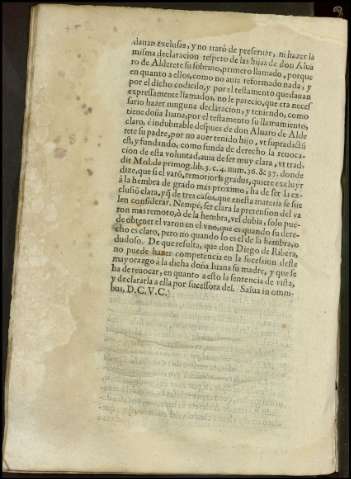 dauan exclusas, y no trató de preseruar, ni hazer la
misma declaracion respeto de las hijas de don Alua
ro de Alderete su sobrino, primero llamado, porque
en quanto a ellos, como no auia reformado nada, y
por el dicho codicilo, y por el testamento quedauan
expressamente llamados, no le parecio, que era neces
sario hazer ninguna declaracion, y teniendo, como
tiene doña Iuana, por el testamento su llamamiento,
claro, è indubitable despues de don Aluaro de Alde
rete su padre, por no auer tenido hijo, vt supradictũ
est, y fundando, como funda de derecho la reuoca-
cion de esta voluntad, auia de ser muy clara, vt trad-
dit Mol. de primog. lib. 3. c. 4. num. 36. & 37. donde
dize, que si el varõ, remotioris gradus, quiere excluyr
à la hembra de grado mas proximo, ha de ser la ex-
clusiõ clara, y q̃ de tres casos, que en esta materia se sue
len considerar. Nempè, ser clara la pretension del va
ron mas remoto, ò de la hembra, vel dubia, solo pue-
de obtener el varon en el vno, que es quando su dere-
cho es claro, pero no quando lo es el de la hembra, o
dudoso. De que resulta, que don Diego de Ribera,
no puede hazer competencia en la sucession deste
mayorazgo à la dicha doña Iuana su madre, y que se
ha de reuocar, en quanto a esto la sentencia de vista,
y declararla a ella por sucessora del. Salua in omni-
bus, D.C.V.C.